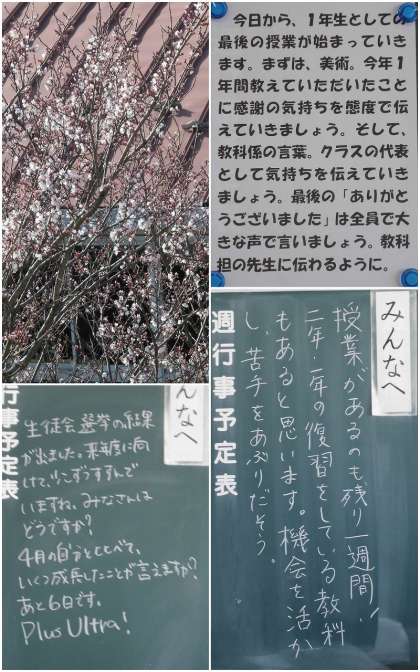 今日から、１年生としての
最後の授業が始まっていき
ます。まずは、美術。今年１
年間教えていただいたこと
に感謝の気持ちを態度で伝
えていきましょう。そして、
教科係の言葉。クラスの代表
として気持ちを伝えていき
ましょう。最後の「ありがと
うございました」は全員で大
きな声で言いましょう。教科
担の先生に伝わるように。
みんなへ
授業があるのも残り一週間！
二年・一年の復習をしている教科
もあると思います。機会を活か
し、苦手をあぶりだそう。
週行事予定表
んなへ
生徒会選挙の結果
が出ました。来年度に向
けて、少しずつすすんで
いますね。みなさんは
どうですか？
4月の自分とくらべて、
いくつ成長したことが言えますか？
あと6日です。
Plus Ultra!
行事予定表